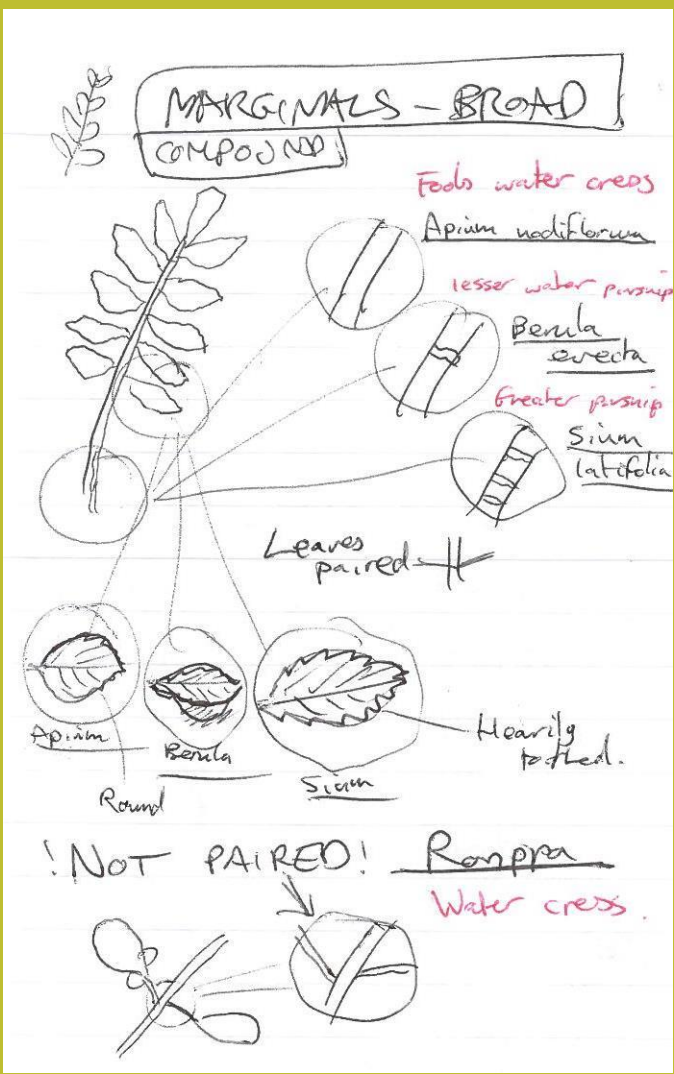 MARGINALS - BROAD
COMPOUND
Fools water cress
Apium nodiflorum
lesser water parsnip
Berula
erecta
Greater parsnip
Sium
latifolia
Leaves
paired
Apium
Berula
Sium
Round
Heavily
toothed.
! NOT PAIRED!
Rorippa
Water cress.